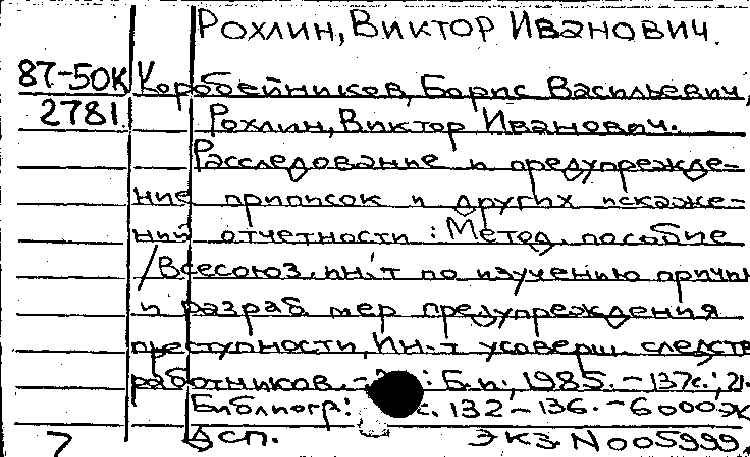 Рохлин, Виктор Иванович.
87-50К Коробейников, Борис Васильевич,
2781 Рохлин, Виктор Иванович.
Расследование и предупрежде-
ние приписок и других искаже-
ний отчетности : Метод. пособие
/ Всесоюз. ин-т по изучению причин
и разраб мер предупреждения
преступности, Ин-т усоверш. следств
работников. - : Б.и., 1985. - 137с.;
Библиогр.: с. 132-136. - 6000эк
7 Дсп. Экз. N005999.